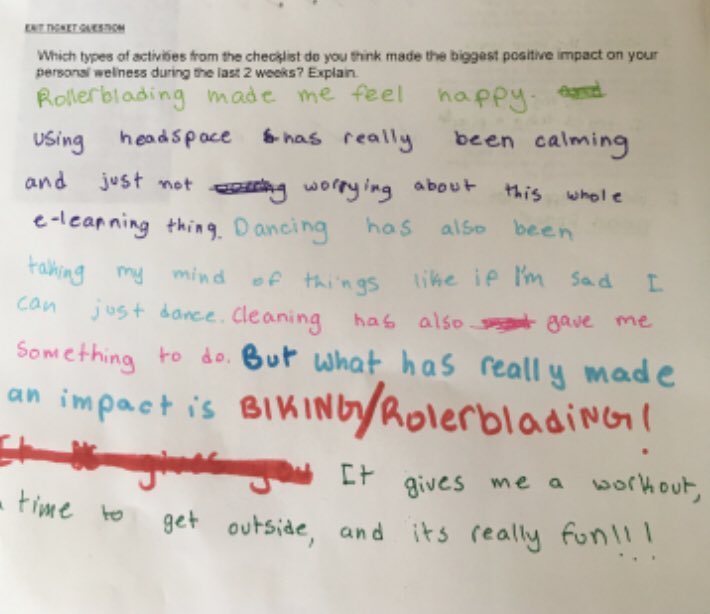 EXIT TICKET QUESTION
Which types of activities from the checklist do you think made the biggest positive impact on your
personal wellness during the last 2 weeks? Explain.
Rollerblading made me feel happy. and
using headspace has really been calming
and just not worrying about this whole
e-learning thing. Dancing has also been
taking my mind of things like if I'm sad I
can just dance. Cleaning has also gave me
something to do. But what has really made
an impact is BIKING/RolerbladiNG!
It is gives you It gives me a workout,
time to get outside, and its really fun!!!